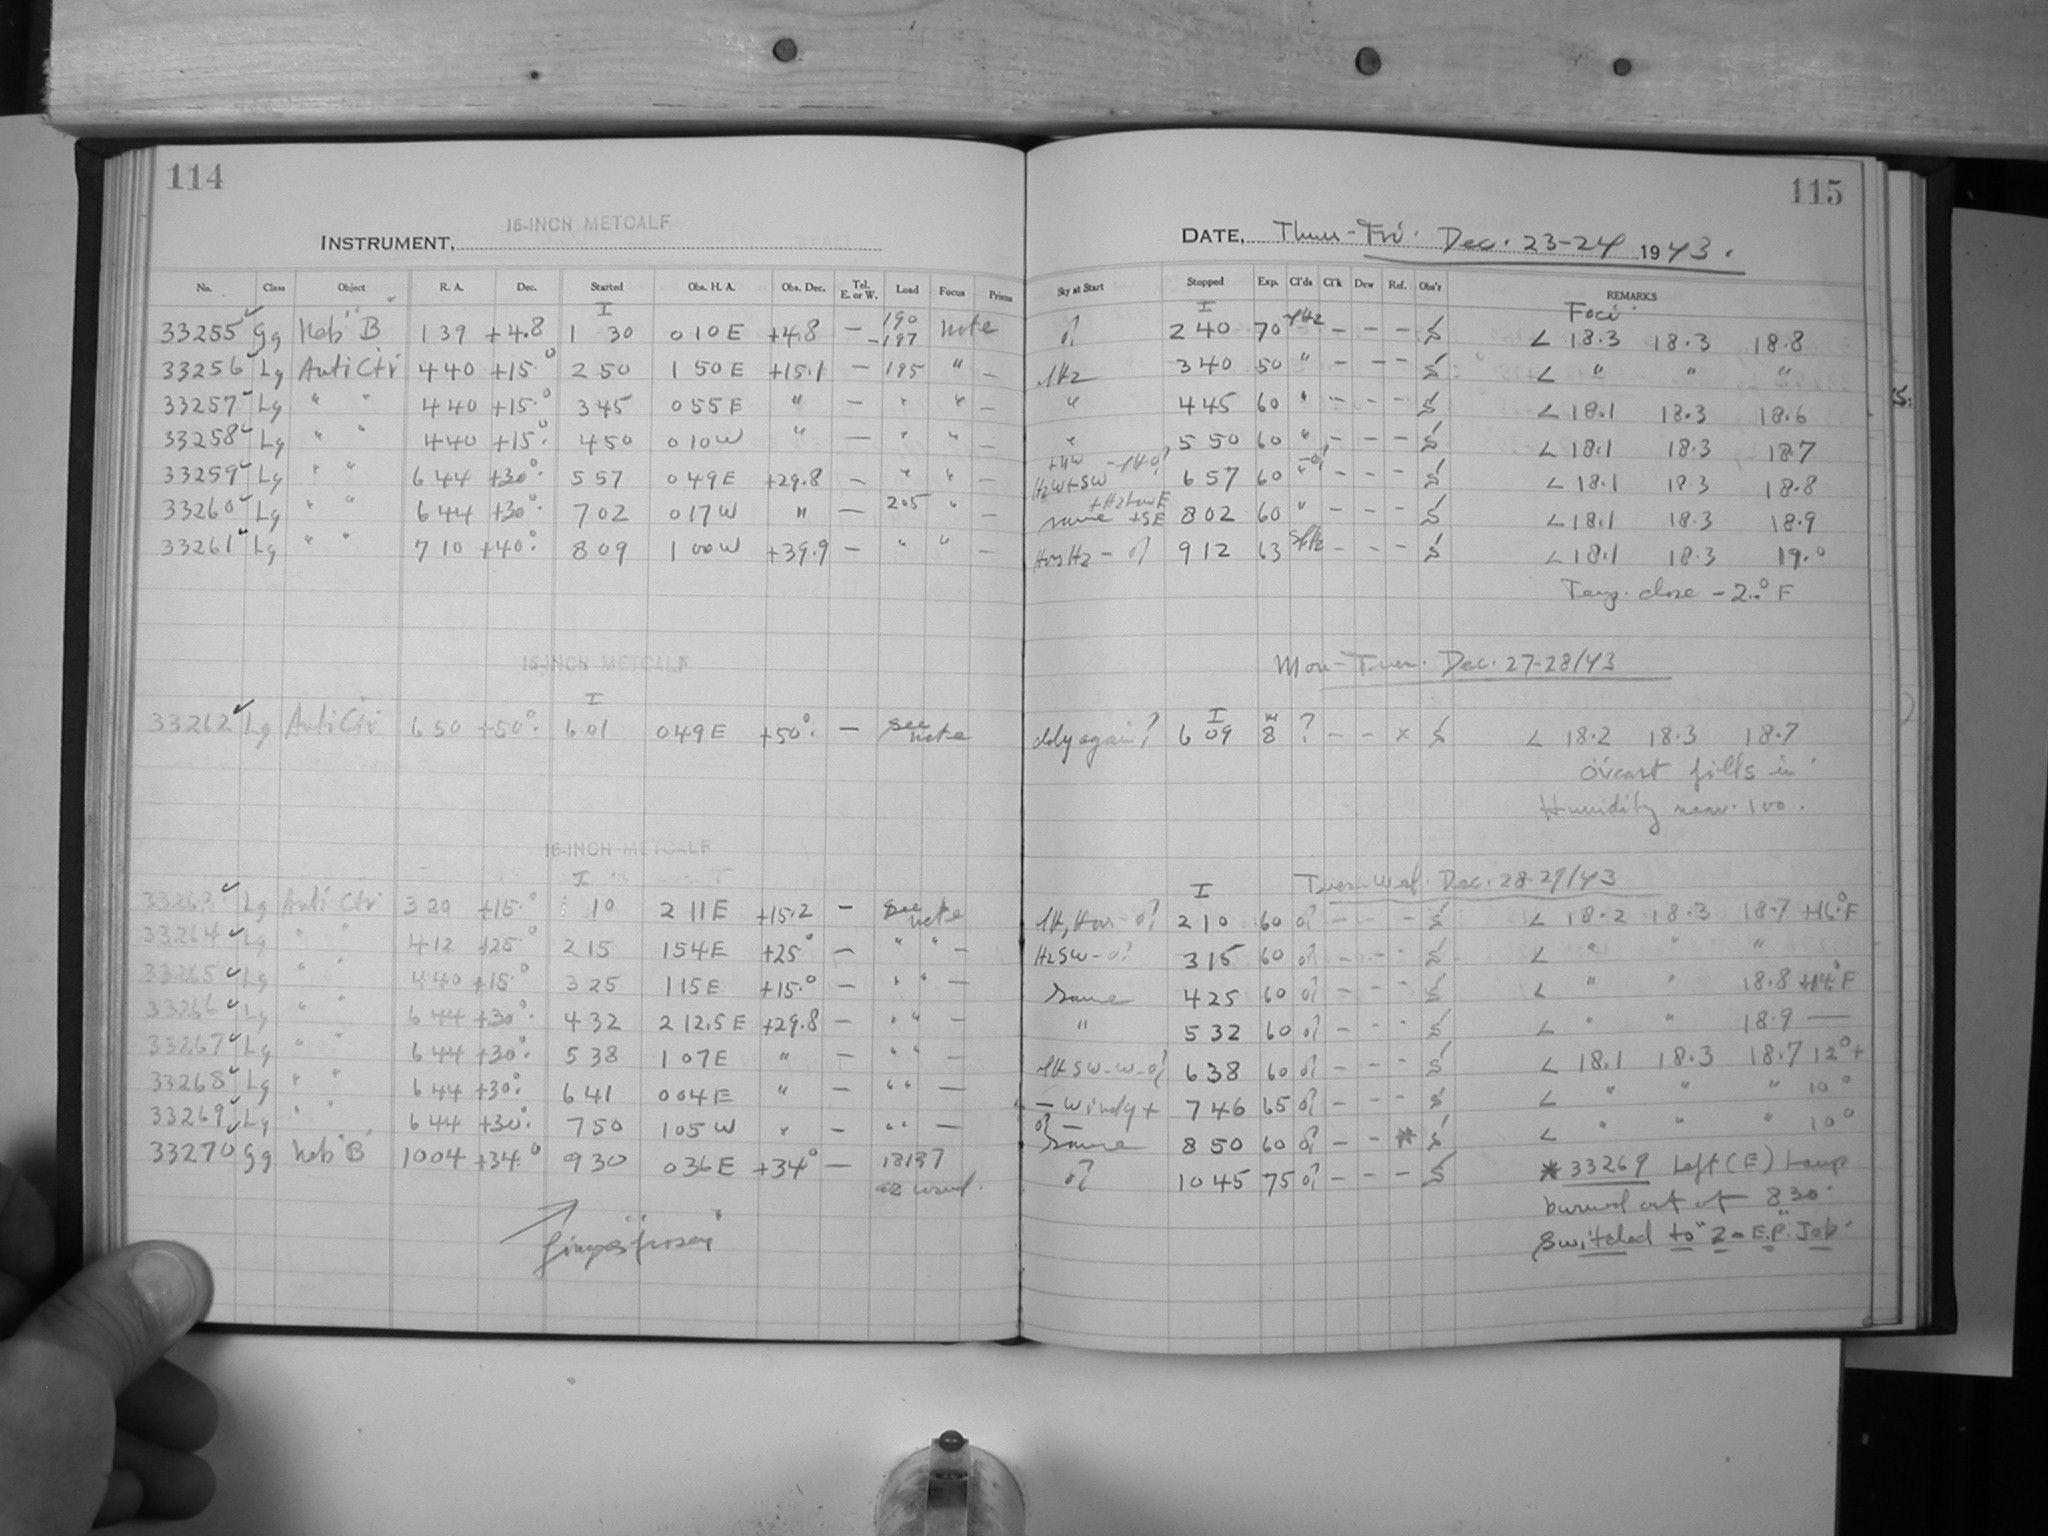 114
115
16-INCH METCALF
INSTRUMENT,
DATE, Thur-Fri. Dec. 23-24 1943.
No. Class Object R. A. Dec. Started Obs. H. A. Obs. Dec. Tel. E. or W. Load Focus Prism Sky at Start Stopped Exp. Cl'ds Cl'k Dew Ref. Obs'r REMARKS
I I Foci
33255 Gg Neb "B" 1 39 +4.8 1 30 0 10 E +4.8 — 190 -197 note 2 40 70 – – – < 18.3 18.3 18.8
33256 Lg Anti Ctr 4 40 +15° 2 50 1 50 E +15.1 — 195 " — 3 40 50 " – – – < " " "
33257 Lg " " 4 40 +15.° 3 45 0 55 E " — " " — " 4 45 60 " – – – < 18.1 18.3 18.6
33258 Lg " " 4 40 +15.° 4 50 0 10 W " — " " — " 5 50 60 " – – – < 18.1 18.3 18.7
33259 Lg " " 6 44 +30.° 5 57 0 49 E +29.8 — " " — Hz W+SW 6 57 60 – – – < 18.1 18.3 18.8
33260 Lg " " 6 44 +30.° 7 02 0 17 W " — 205 " — same +Hz low E +SE 8 02 60 " – – – < 18.1 18.3 18.9
33261 Lg " " 7 10 +40.° 8 09 1 00 W +39.9 — " " — Hor Hz – 9 12 63 – – – < 18.1 18.3 19.0
Temp. close -2.° F
15-INCH METCALF
Mon-Tues. Dec. 27-28/43
I I
33262 Lg Anti Ctr 6 50 +50.° 6 01 0 49 E +50.° — see note cldy again? 6 09 8 ? – – x < 18.2 18.3 18.7
Ov'cast fills in
Humidity near 100.
16-INCH METCALF
Tues-Wed. Dec. 28-29/43
I I
33263 Lg Anti Ctr 3 29 +15.° 1 10 2 11 E +15.2 — see note 2 10 60 – – – < 18.2 18.3 18.7 +16.°F
33264 Lg " " 4 12 +25.° 2 15 1 54 E +25° — " " — Hz SW – 3 15 60 – – – < " " "
33265 Lg " " 4 40 +15.° 3 25 1 15 E +15.° — " " — same 4 25 60 – – – < " " 18.8 +14°F
33266 Lg " " 6 44 +30.° 4 32 2 12.5 E +29.8 — " " — " 5 32 60 – – – < " " 18.9 —
33267 Lg " " 6 44 +30.° 5 38 1 07 E " — " " — 6 38 60 – – – < 18.1 18.3 18.7 12°+
33268 Lg " " 6 44 +30.° 6 41 0 04 E " — " " — – windy + 7 46 65 – – – < " " " 10°
33269 Lg " " 6 44 +30.° 7 50 1 05 W " — " " — same 8 50 60 – – * < " " " 10°
33270 Gg Neb "B" 10 04 +34.° 9 30 0 36 E +34° — 18187 as usual. 10 45 75 – – – * 33269 Left (E) Lamp
burned out at 8 30.
Switched to "2 - E.P." Job.
fingers "frozen"